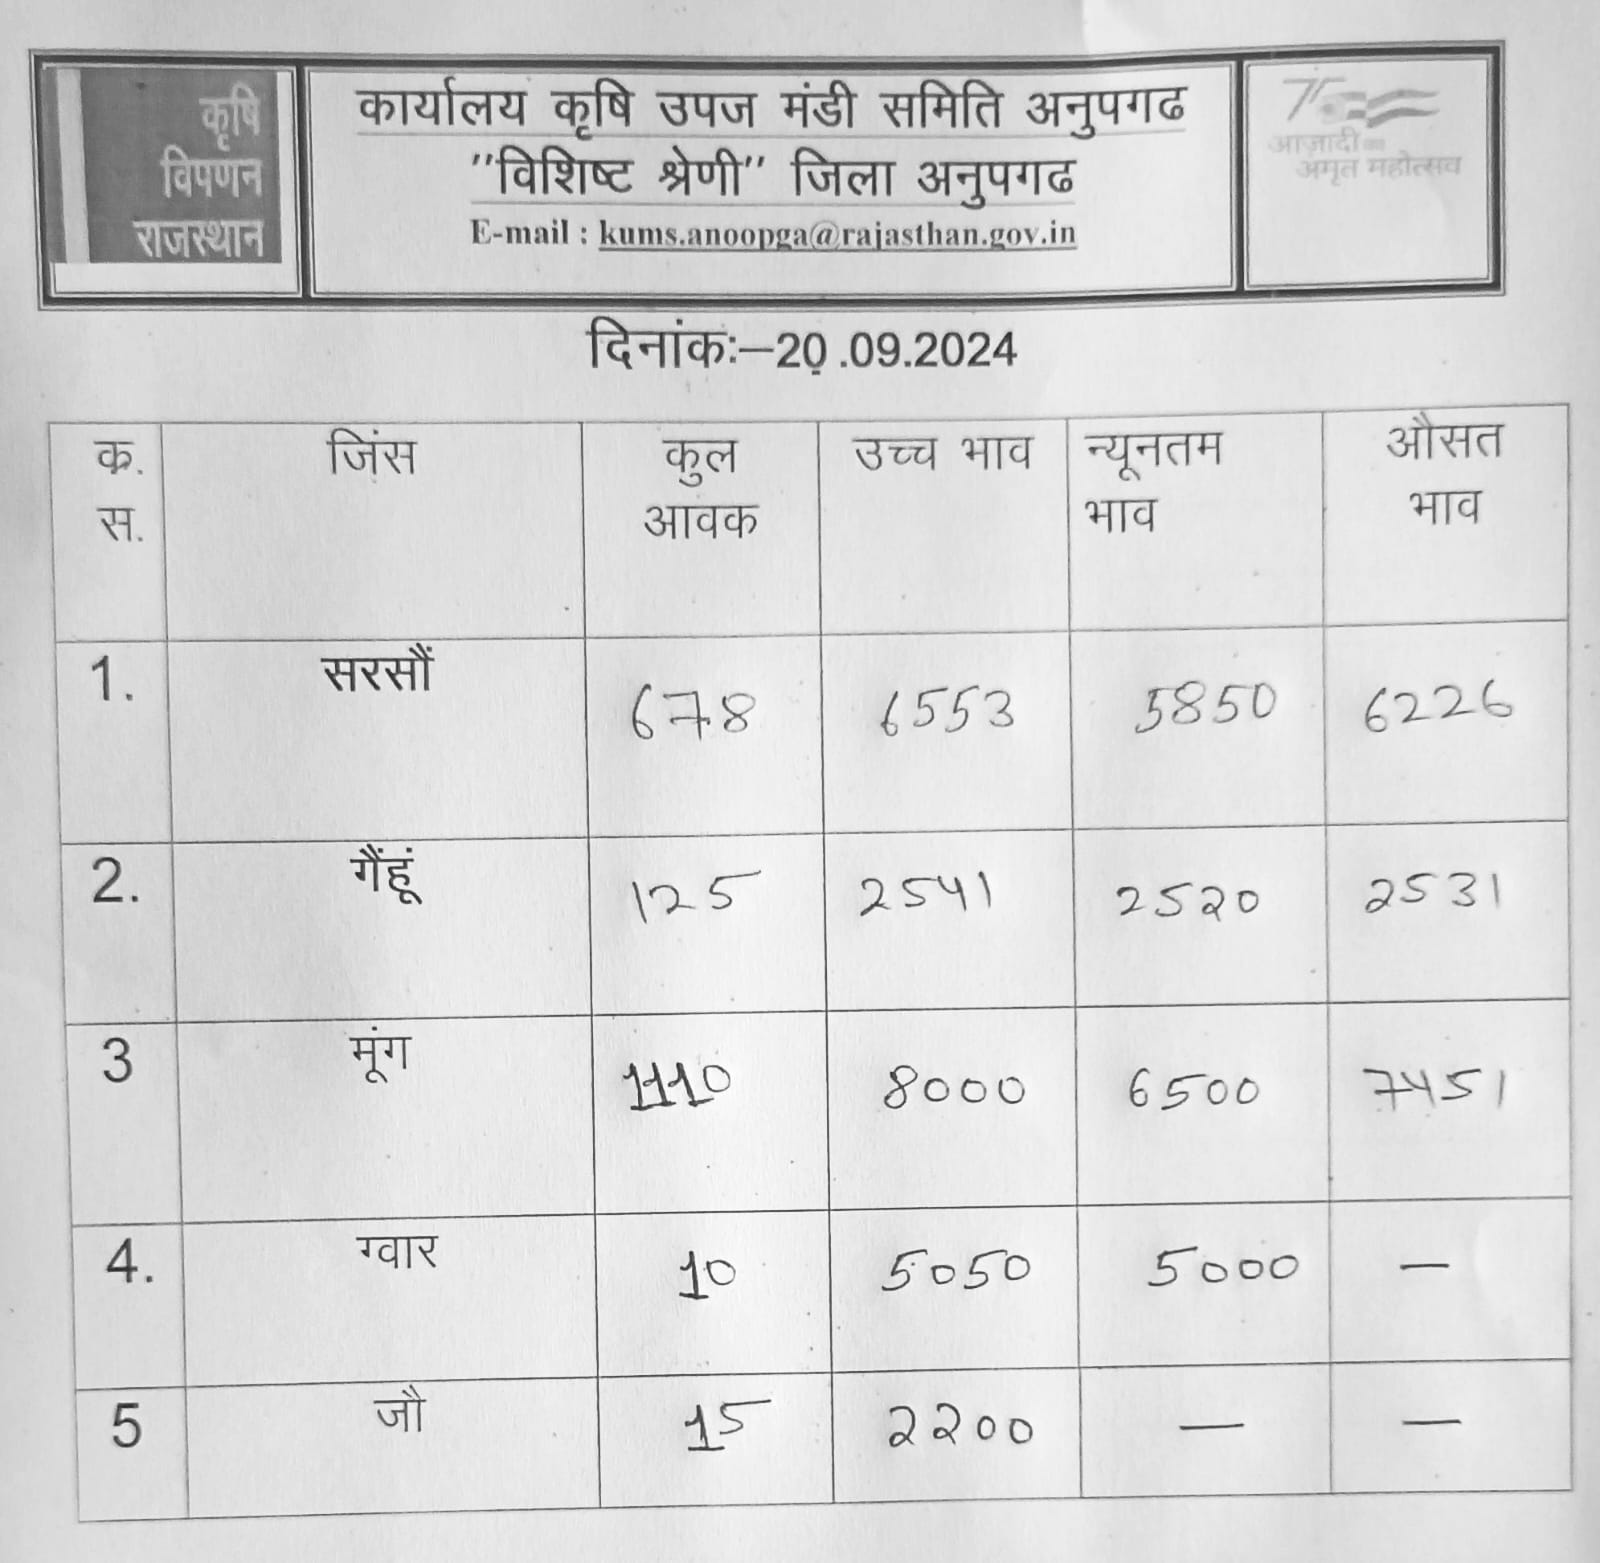 कृषि
विपणन
राजस्थान
कार्यालय कृषि उपज मंडी समिति अनुपगढ
"विशिष्ट श्रेणी" जिला अनुपगढ
E-mail : kums.anoopga@rajasthan.gov.in
75
आज़ादी का
अमृत महोत्सव
दिनांकः–20.09.2024
क. स. जिंस कुल आवक उच्च भाव न्यूनतम भाव औसत भाव
1. सरसौं 678 6553 5850 6226
2. गैंहूं 125 2541 2520 2531
3 मूंग 1110 8000 6500 7451
4. ग्वार 10 5050 5000 —
5 जौ 15 2200 — —